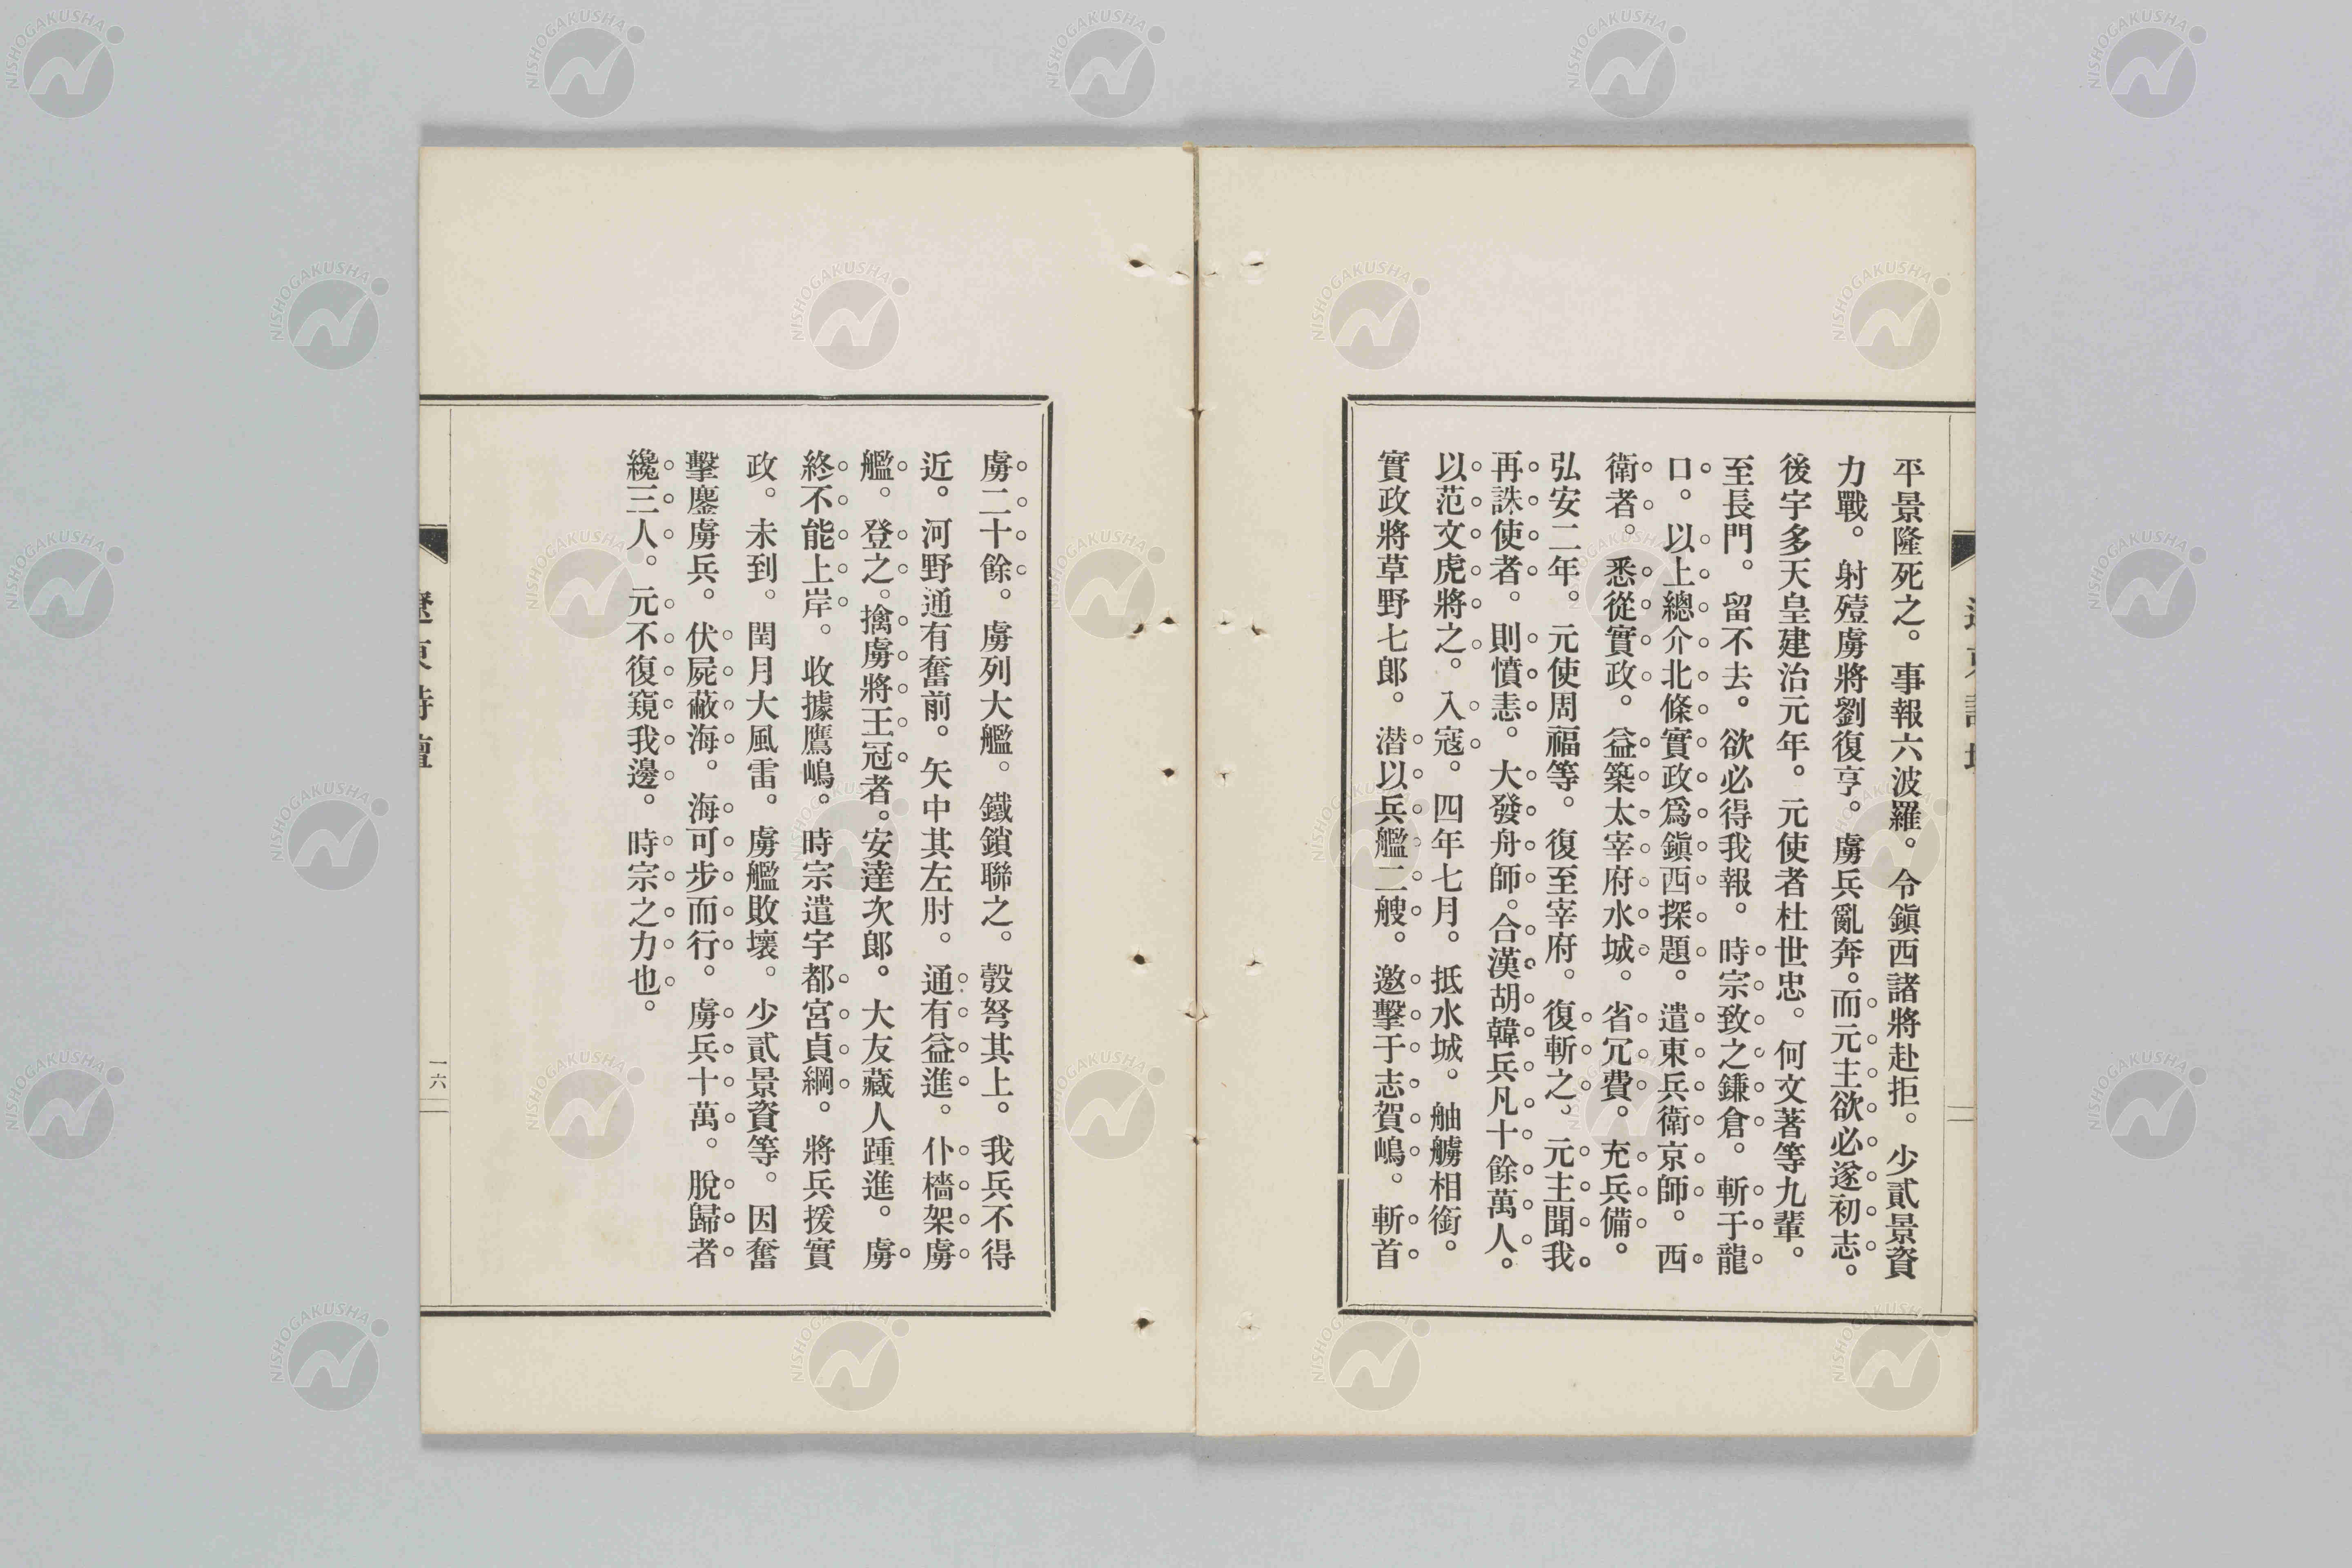 平景隆死之。事報六波羅。令鎭西諸將赴拒。少貳景資
力戰。射殪虜將劉復亨。虜兵亂奔。而元主欲必遂初志。
後宇多天皇建治元年。元使者杜世忠。何文著等九輩。
至長門。留不去。欲必得我報。時宗致之鎌倉。斬于龍
口。以上總介北條實政爲鎭西探題。遣東兵衛京師。西
衛者。悉從實政。益築太宰府水城。省冗費。充兵備。
弘安二年。元使周福等。復至宰府。復斬之。元主聞我
再誅使者。則憤恚。大發舟師。合漢胡韓兵凡十餘萬人。
以范文虎將之。入寇。四年七月。抵水城。舳艫相銜。
實政將草野七郎。潜以兵艦二艘。邀擊于志賀嶋。斬首
虜二十餘。虜列大艦。鐵鎖聯之。彀弩其上。我兵不得
近。河野通有奮前。矢中其左肘。通有益進。仆檣架虜
艦。登之。擒虜將王冠者。安達次郎。大友藏人踵進。虜
終不能上岸。收據鷹嶋。時宗遣宇都宮貞綱。將兵援實
政。未到。閏月大風雷。虜艦敗壞。少貳景資等。因奮
擊鏖虜兵。伏屍蔽海。海可步而行。虜兵十萬。脫歸者
纔三人。元不復窺我邊。時宗之力也。
遼東詩壇
一六
NISHOGAKUSHA